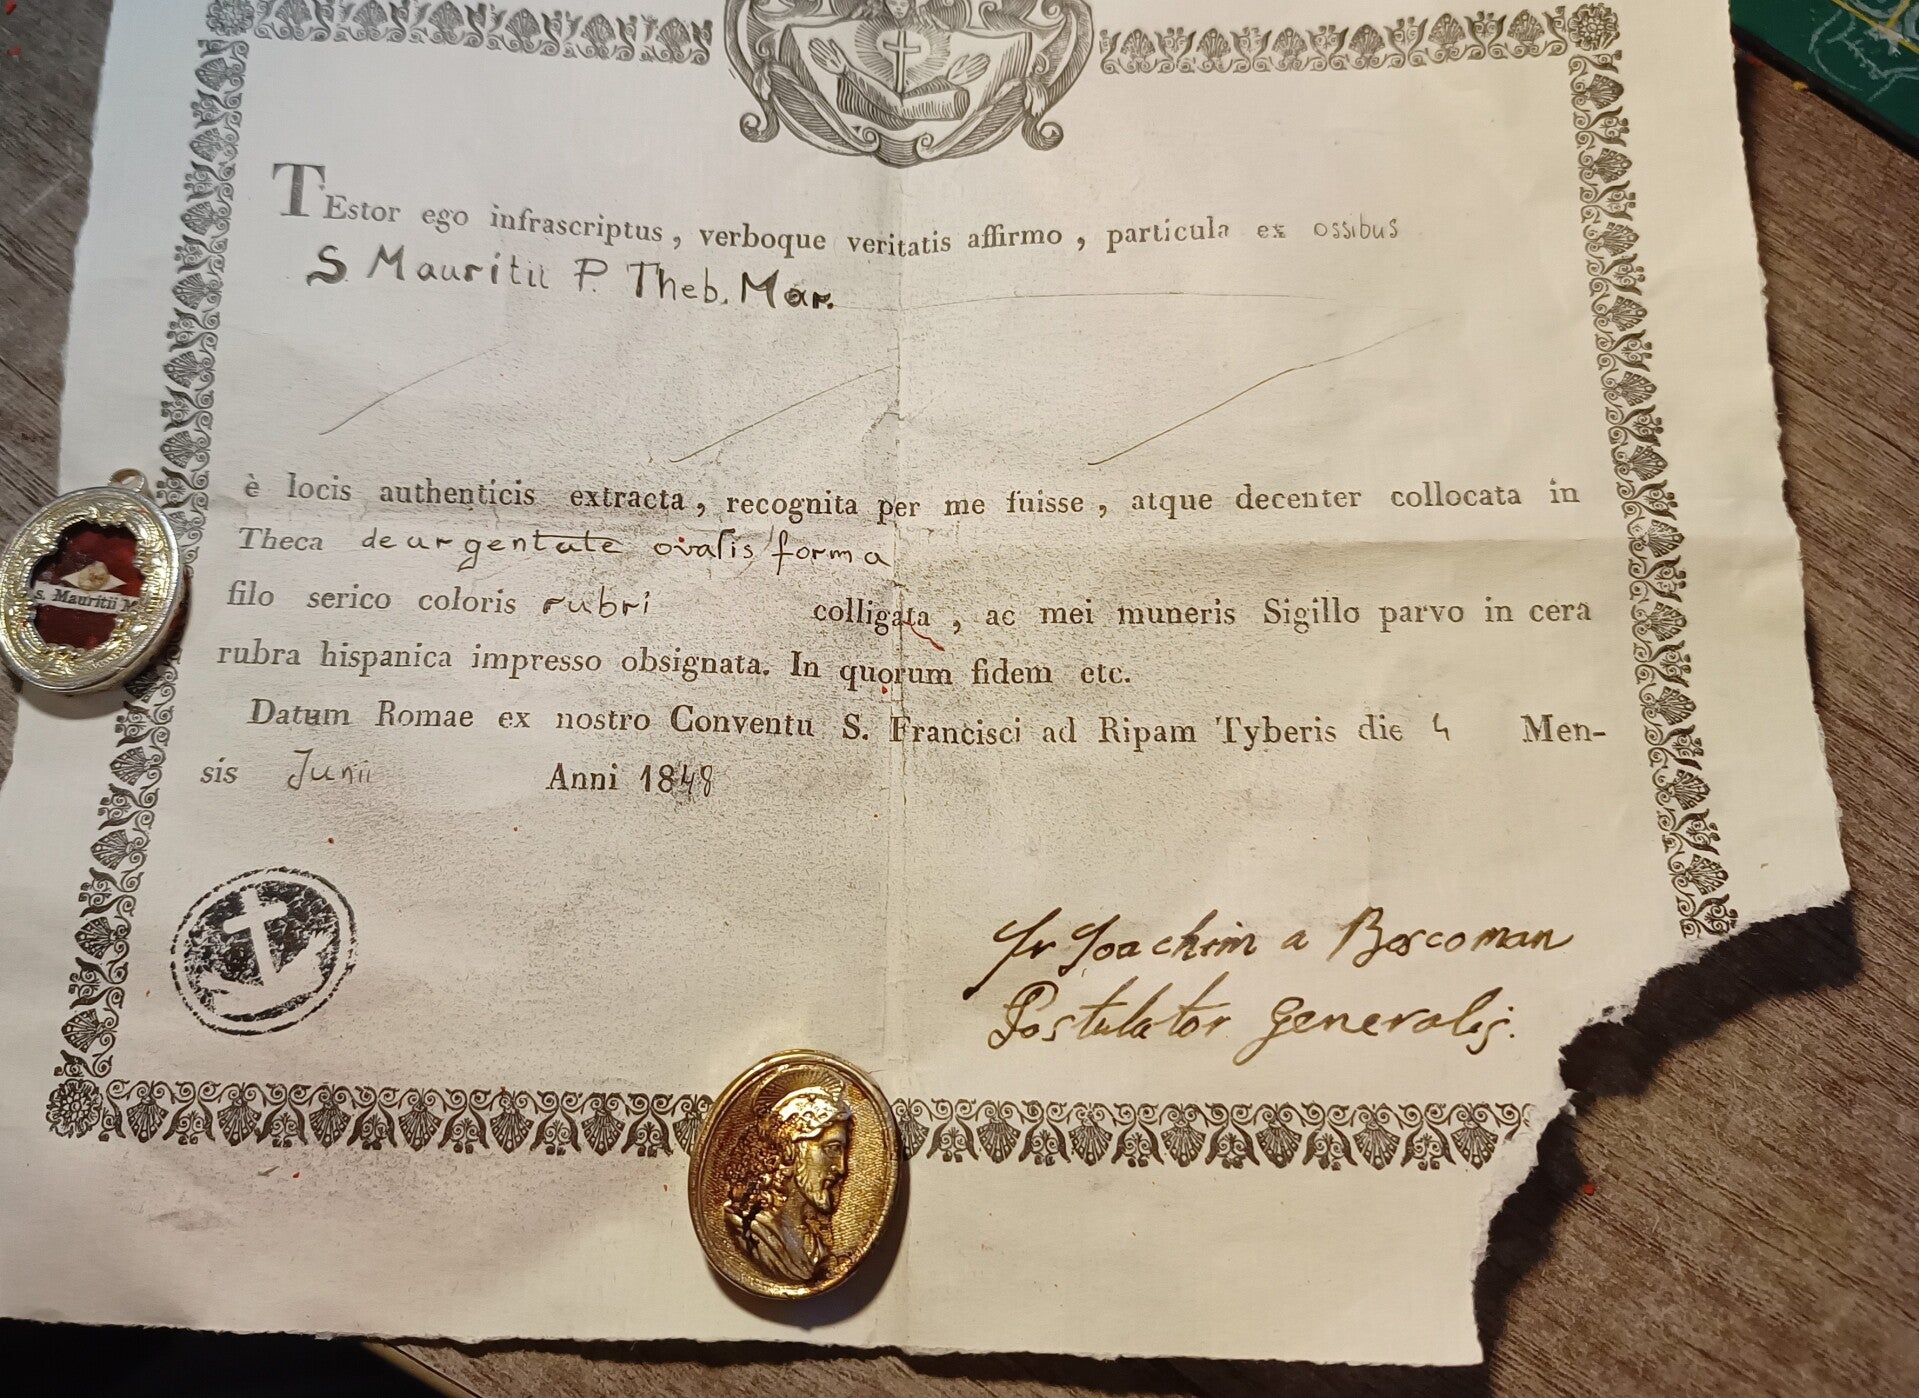 TEstor ego infrascriptus, verboque veritatis affirmo, particula ex ossibus
S. Mauritii P. Theb. Mar.
è locis authenticis extracta, recognita per me fuisse, atque decenter collocata in
Theca de argentate ovalis forma
filo serico coloris rubri colligata, ac mei muneris Sigillo parvo in cera
rubra hispanica impresso obsignata. In quorum fidem etc.
Datum Romae ex nostro Conventu S. Francisci ad Ripam Tyberis die 4 Men-
sis Junii Anni 1848
Fr Joachim a Boscoman
Postulator Generalis.
s. Mauritii M